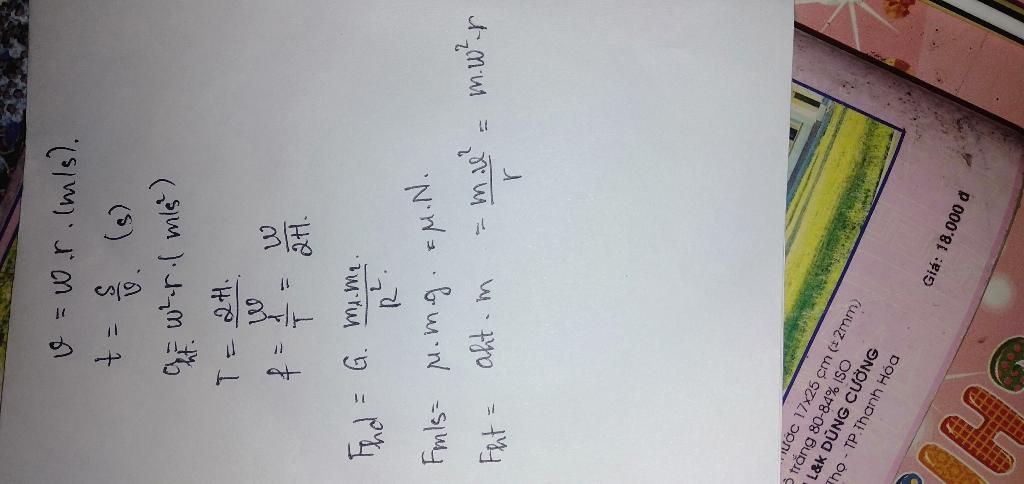 v = ω.r. (m/s).
t = S/v. (s)
aht = ω².r. (m/s²)
T = 2π./ω
f = 1/T = ω/2π.
Fhd = G. m1.m2./R².
Fmls = μ.m.g. = μ.N.
Fht = aht.m = m.v²/r = m.ω².r
Giá: 18.000 đ
17x25 cm (±2mm)
trắng 80-84% ISO
L&K DŨNG CƯỜNG
Thọ - TP.Thanh Hóa